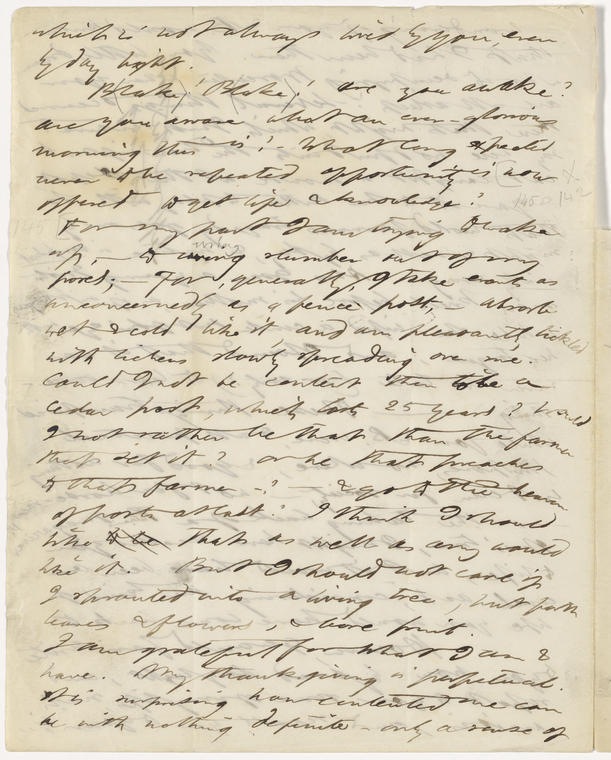 which is not always lived by you, even
by day light.
Blake! Blake! are you awake?
are you aware what an ever-glorious
morning this is? - What long expected
never to be repeated opportunity is now
offered to get life & knowledge?
For my part I am trying to wake
up, - to wring slumber out of my
wring
pores; - For, generally, I take events as
unconcernedly as a fence post, - absorb
wet & cold like it, and am pleasantly tickled
with lichens slowly spreading over me.
Could I not be content then to be a
cedar post, which lasts 25 years? Would
I not rather be that than the farmer
that set it? or he that preaches
to that farmer -? - & go to the heaven
of posts at last? I think I should
like that as well as any would
like it. But I should not care if
I sprouted into a living tree, put forth
leaves & flowers, & bore fruit.
I am grateful for what I am &
have. My thanksgiving is perpetual.
It is surprising how contented one can
be with nothing definite - only a sense of